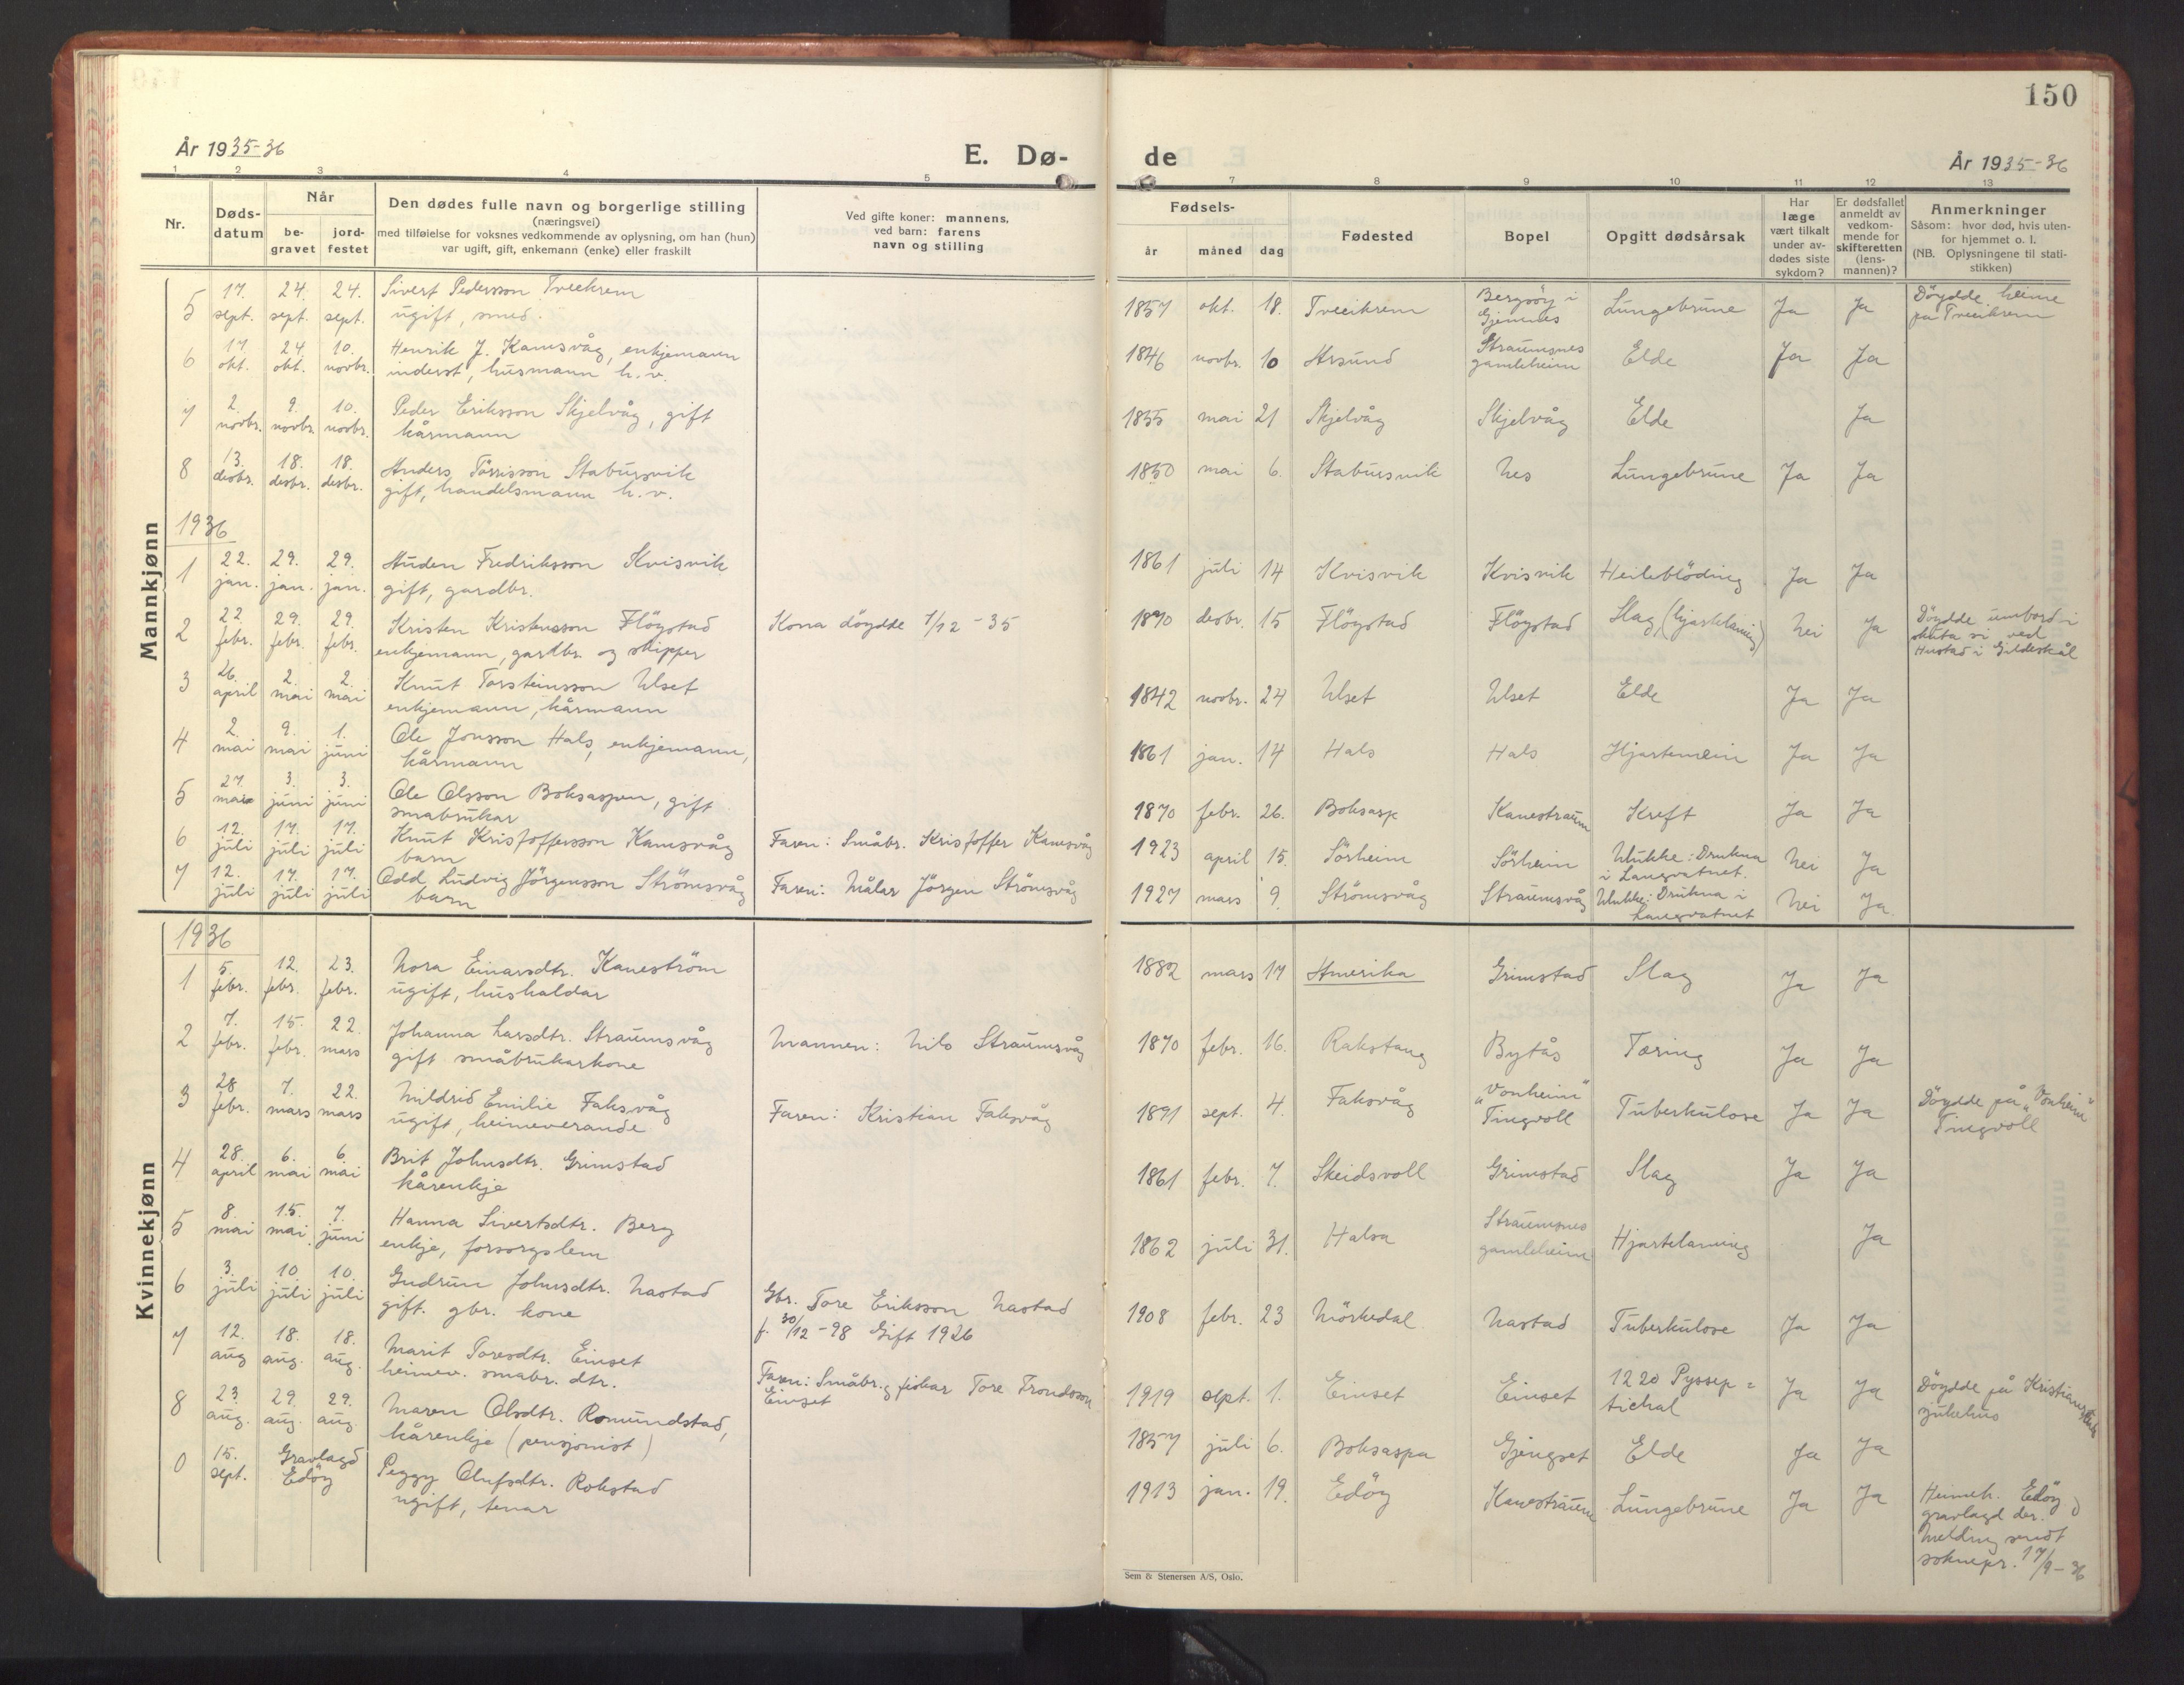 150
År 1935-36
E. Dø-
de
År 1935-36
1 2 3 4 5
7 8 9 10 11 12 13
Nr.
Døds-
datum
Når
be-
gravet
jord-
festet
Den dødes fulle navn og borgerlige stilling
(næringsvei)
med tilføielse for voksnes vedkommende av oplysning, om han (hun)
var ugift, gift, enkemann (enke) eller fraskilt
Ved gifte koner: mannens,
ved barn: farens
navn og stilling
Fødsels-
år
måned
dag
Fødested
Bopel
Opgitt dødsårsak
Har
læge
vært tilkalt
under av-
dødes siste
sykdom?
Er dødsfallet
anmeldt av
vedkom-
mende for
skifteretten
(lens-
mannen)?
Anmerkninger
Såsom: hvor død, hvis uten-
for hjemmet o. l.
(NB. Oplysningene til stati-
stikken)
Mannkjønn
5 17. sept. 24. sept. 24. sept. Sivert Pedersson Tveekrem
ugift, smed.
1857 okt. 18. Tveeikrem Bergsöy i
Gjemnes Lungebrune Ja Ja Döydde heime
på Tveeikrem
6 17 okt. 24. okt. 10. novbr. Henrik J. Kamsvåg, enkjemann
inderst, husmann h. v.
1846 novbr. 10 Arsund Straumsnes
gamleheim Elde Ja Ja
7 2. novbr. 9. novbr. 10. novbr. Peder Eriksson Skjelvåg, gift
kårmann
1855 mai 21 Skjelvåg Skjelvåg Elde Ja
8 13. desbr. 18. desbr. 18. desbr. Anders Tårrisson Stabursvik
gift, handelsmann h. v.
1850 mai 6. Stabursvik Nes Lungebrune Ja Ja
1936
1 22. jan. 29. jan. 29. jan. Auden Fredriksson Kvisvik
gift, gardbr.
1861 juli 14 Kvisvik Kvisvik Heileblöding Ja Ja
2 22. febr. 29. febr. 29. febr. Kristen Kristensson Flöystad
enkjemann, gardbr. og skipper
Kona döydde 7/12 - 35
1870 desbr. 15 Flöystad Flöystad Slag, (hjarteламing) Nei Ja Döydde umbord i
skuta si ved
Hustad i Gildeskål
3 26. april 2. mai 2. mai Knut Torsteinsson Ulset
enkjemann, kårmann
1842 novbr. 24 Ulset Ulset Elde Ja Ja
4 2. mai 9. mai 1. juni Ole Jonsson Hals, enkjemann,
kårmann
1861 jan. 14 Hals Hals Hjartemein Ja Ja
5 27. mai 3. juni 3. juni Ole Olsson Boksaspen, gift
småbrukar
1870 febr. 26. Boksasp Kanestraum Kreft Ja Ja
6 12. juli 17. juli 17. juli Knut Kristoffersson Kamsvåg
barn
Faren: Småbr. Kristoffer Kamsvåg
1923 april 15. Sörheim Sörheim Ulukke: Drukna
i Langvatnet. Nei Ja
7 12. juli 17. juli 17. juli Odd Ludvig Jörgensson Strömsvåg
barn
Faren: Målar Jörgen Strömsvåg
1927 mars 9. Strömsvåg Straumsvåg Ulukke: Drukna i
Langvatnet Nei Ja.
Kvinnekjønn
1936
1 5. febr. 12. febr. 23. febr. Nora Einarsdtr. Kaneström
ugift, hushaldar
1882 mars 17 Amerika Grimstad Slag Ja Ja
2 7. febr. 15. febr. 22. mars Johanna Larsdtr. Straumsvåg
gift småbrukarkone
Mannen: Nils Straumsvåg
1870 febr. 16. Rakstang Bytås Tæring Ja Ja
3 28 febr. 7. mars 22. mars Mildrid Emilie Faksvåg
ugift, heimeverande
Faren: Kristian Faksvåg
1891 sept. 4. Faksvåg "Vonheim"
Tingvoll Tuberkulose Ja Ja Döydde på "Vonheim"
Tingvoll
4 28. april 6. mai 6. mai Brit Johnsdtr. Grimstad
kårenkje
1861 febr. 7. Skeidsvoll Grimstad Slag Ja Ja
5 8. mai 15. mai 7. juni Hanna Sivertsdtr. Berg
enkje, forsorgslem
1862 juli 31. Halsa Straumsnes
gamleheim Hjartelaming Ja
6 3. juli 10 juli 10. juli Gudrun Johnsdtr. Nastad
gift. gbr. kone
Gbr. Tore Eriksson Nastad
f. 30/12 - 98 Gift 1926
1908 febr. 23 Mörkedal Nastad Tuberkulose Ja Ja
7 12. aug 18. aug. 18. aug. Marit Toresdtr. Einset
heimev. småbr. dtr.
Faren: Småbr. og fiskar Tore Trondsson
Einset
1919 sept. 1. Einset Einset 1220 Pyssep=
tichal Ja Ja Döydde på Kristiansund
sjukehus
8 23. aug. 29. aug. 29. aug Maren Olsdtr. Romundstad,
kårenkje (pensjonist)
1857 juli 6. Boksaspa Gjengset Elde Ja Ja
0 15. sept. Gravlagd
Edöy Peggy Olufsdtr. Rokstad
ugift, tenar
1913 jan. 19. Edöy Kanestraum Lungebrune Ja Ja Heimeh. Edöy
gravlagd der.
Melding sendt
soknepr. 17/9 - 36
Sem & Stenersen A/S, Oslo.